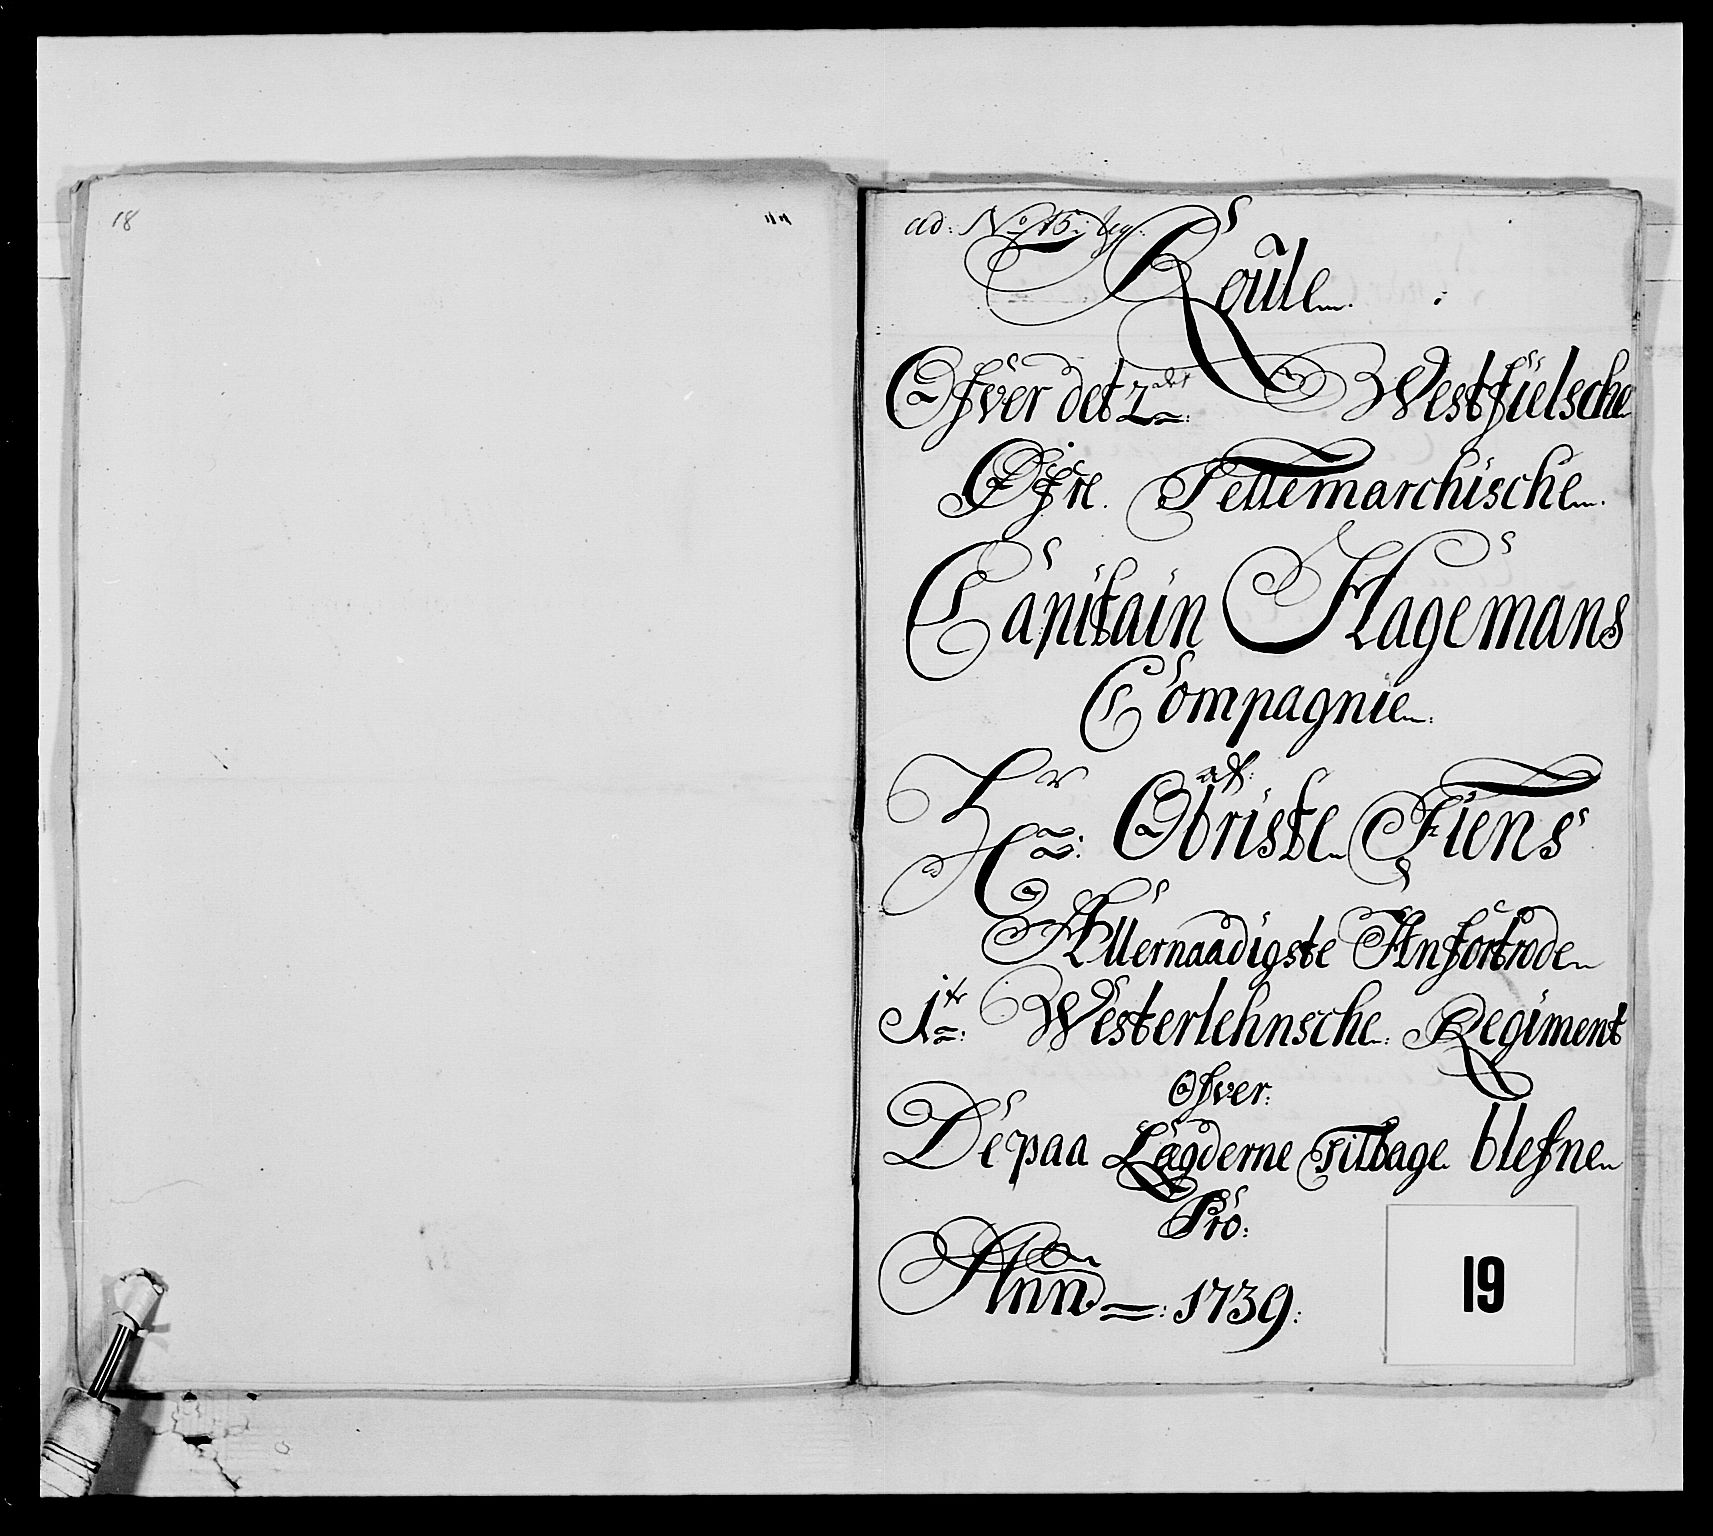 18
ad: No 15:
Roule.
Ofver det 2det Westfielsche
Øfre Tellemarchische.
Capitain Hagemans
Compagnie.
af:
Hr: Obriste Fiens
Allernaadigste Anfortrode
1te: Westerlehnsche: Regiment
Ofver:
De paa Lægderne Tilbage blefne
Pro:
Anno: 1739:
19